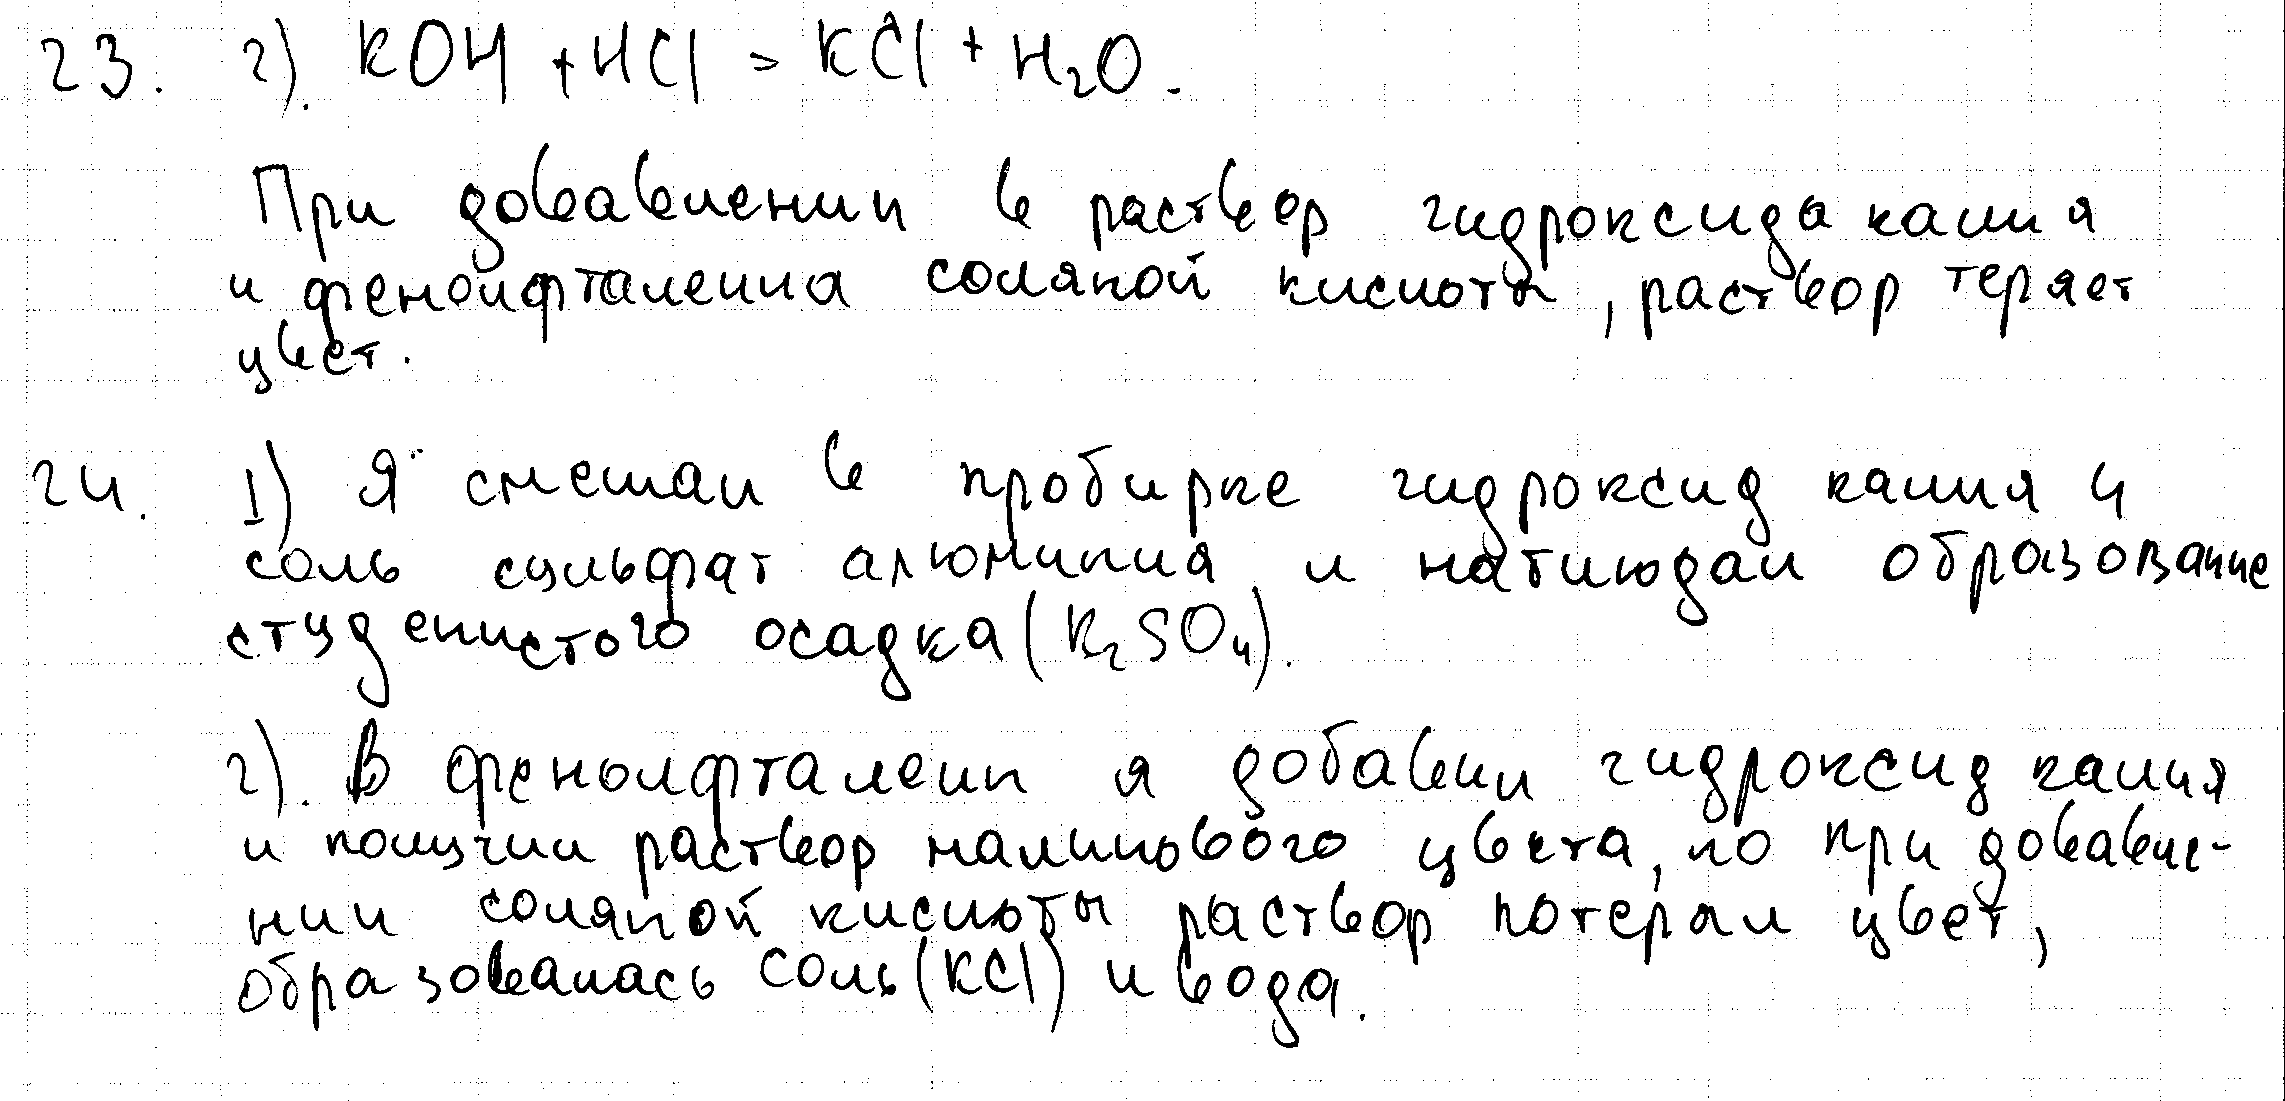 23. 2). KOH + HCl = KCl + H₂O.
При добавлении в раствор гидроксида калия
и фенолфталеина соляной кислоты, раствор теряет
цвет.
24. 1) Я смешал в пробирке гидроксид калия и
соль сульфат алюминия и наблюдал образование
студенистого осадка (K₂SO₄).
2). В фенолфталеин я добавил гидроксид калия
и получил раствор малинового цвета, но при добавле-
нии соляной кислоты раствор потерял цвет,
образовалась соль (KCl) и вода.